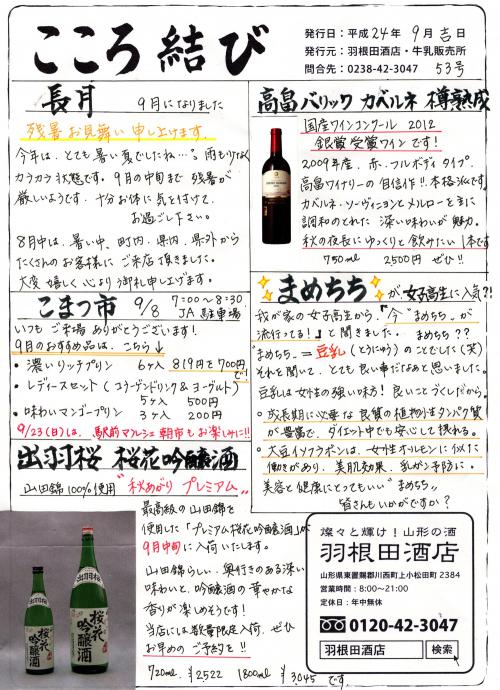 こころ結び
発行日：平成24年 9月吉日
発行元：羽根田酒店・牛乳販売所
問合先：0238-42-3047 53号
長月 9月になりました
残暑お見舞い申し上げます
今年は、とても暑い夏でしたね…。雨もりなく
カラカラ状態です。9月の中旬まで残暑が
厳しいようです。十分お体に気をつけて、
お過ごし下さい。
8月中は、暑い中、町内、県内、県外から
たくさんのお客様にご来店頂きました。
大変嬉しく心より御礼申し上げます。
こまつ市 9/8 7:00〜8:30
JA駐車場
いつもご来場ありがとうございます！
9月のおすすめ品は、こちら
・濃いリッチプリン 6ヶ入 819円を700円で！
・レディースセット（コラーゲンドリンク＆ヨーグルト）
5ヶ入 500円
・味わいマンゴープリン 3ヶ入 200円
9/23(日)は、駅前マルシェ朝市もお楽しみに!!
出羽桜 桜花吟醸酒
山田錦100%使用 "秋あがりプレミアム"
最高級の山田錦を
使用した「プレミアム桜花吟醸酒」が
9月中旬に入荷いたします。
山田錦らしい、奥行きのある深い
味わいと、吟醸酒の華やかな
香りが楽しめそうです！
当店には数量限定入荷、ぜひ
お早めのご予約を!!
720ml ¥2522 1800ml ¥3045 です。
出羽桜
桜花
吟醸酒
出羽桜
桜花
吟醸酒
高畠バリック カベルネ 樽熟成
国産ワインコンクール 2012
銀賞受賞ワインです！
2009年産、赤、フルボディタイプ。
高畠ワイナリーの自信作!! 本格派です。
カベルネ・ソーヴィニヨンとメルローを主に
調和のとれた 深い味わいが魅力。
秋の夜長にゆっくりと飲みたい1本です
750ml 2500円 ぜひ!!
まめちち が、女子高生に人気?!
我が家の女子高生から、「今"まめちち"が
流行ってる！」と聞きました。まめちち??
"まめちち"＝豆乳（とうにゅう）のことでした（笑）
それを聞いて、とても良い事だなぁと思いました。
豆乳は女性の強い味方！良いことづくしだから。
○成長期に必要な良質の植物性タンパク質
が豊富で、ダイエット中でも安心して摂れる。
○大豆イソフラボンは、女性ホルモンに似た
働きがあり、美肌効果、乳がん予防に。
美容と健康にとってもいい"まめちち"
皆さんもいかがですか？
燦々と輝け！山形の酒
羽根田酒店
山形県東置賜郡川西町上小松田町2384
営業時間：8:00〜21:00
定休日：年中無休
0120-42-3047
羽根田酒店 検索